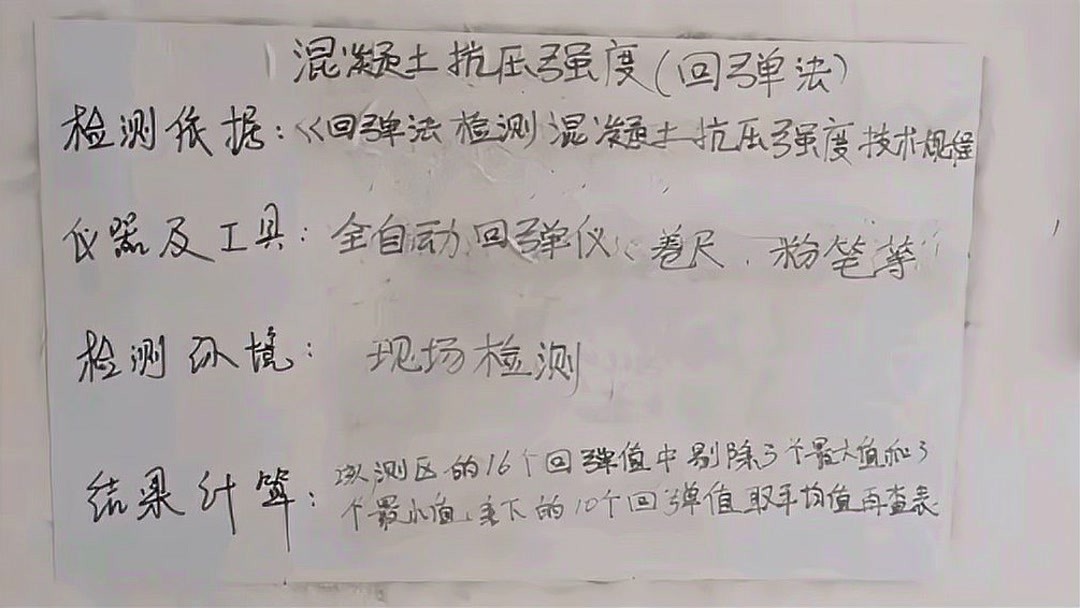 混凝土抗压强度(回弹法)
检测依据:《回弹法检测混凝土抗压强度技术规程
仪器及工具:全自动回弹仪、卷尺、粉笔等
检测环境:现场检测
结果计算:该测区的16个回弹值中剔除3个最大值和3
个最小值,余下的10个回弹值取平均值再查表